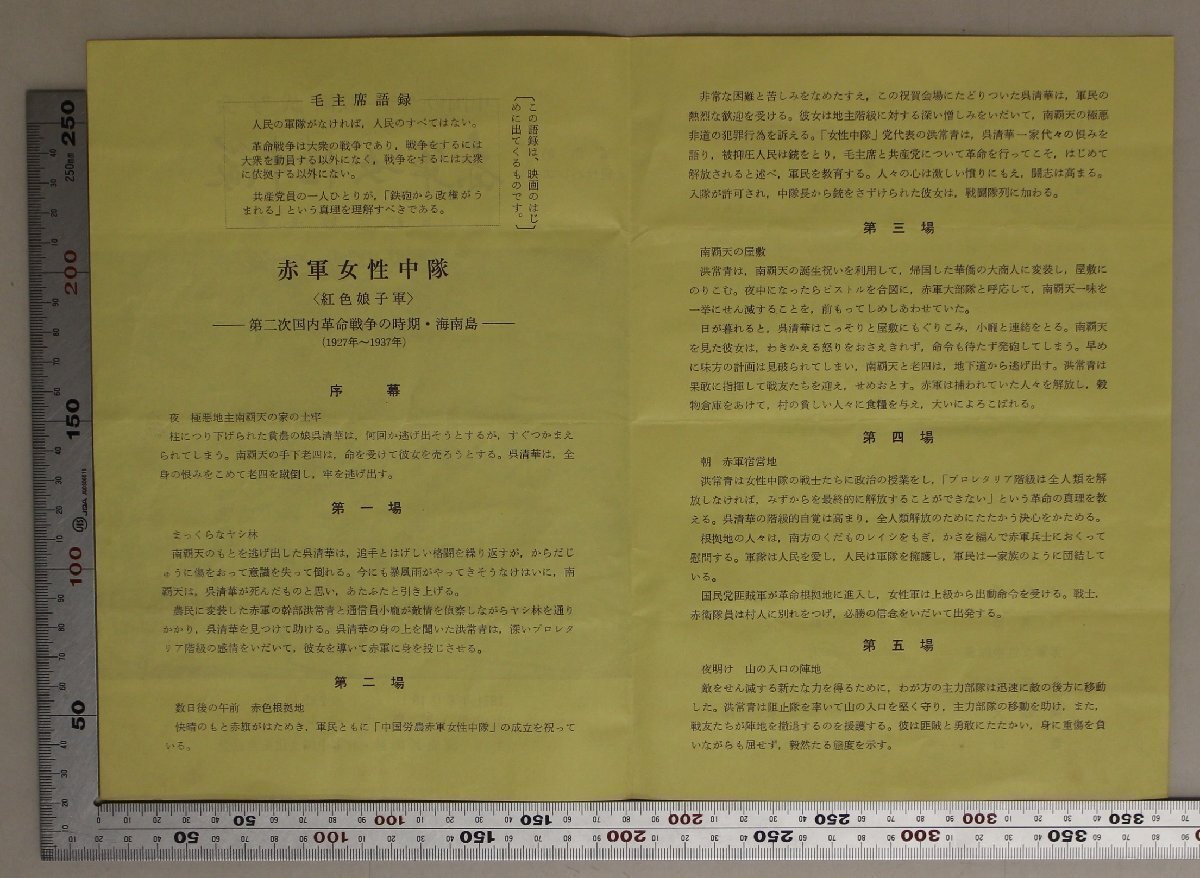 毛主席語録
人民の軍隊がなければ，人民のすべてはない。
革命戦争は大衆の戦争であり，戦争をするには
大衆を動員する以外になく，戦争をするには大衆
に依拠する以外にない。
共産党員の一人ひとりが，「鉄砲から政権がう
まれる」という真理を理解すべきである。
この語録は、映画のはじ
めに出てくるものです。
赤軍女性中隊
〈紅色娘子軍〉
――第二次国内革命戦争の時期・海南島――
(1927年～1937年)
序　幕
夜　極悪地主南覇天の家の土牢
柱につり下げられた貧農の娘呉清華は，何回か逃げ出そうとするが，すぐつかまえ
られてしまう。南覇天の手下老四は，命を受けて彼女を売ろうとする。呉清華は，全
身の恨みをこめて老四を蹴倒し，牢を逃げ出す。
第一場
まっくらなヤシ林
南覇天のもとを逃げ出した呉清華は，追手とはげしい格闘を繰り返すが，からだじ
ゅうに傷をおって意識を失って倒れる。今にも暴風雨がやってきそうなけはいに，南
覇天は，呉清華が死んだものと思い，あたふたと引き上げる。
農民に変装した赤軍の幹部洪常青と通信員小龐が敵情を偵察しながらヤシ林を通り
かかり，呉清華を見つけて助ける。呉清華の身の上を聞いた洪常青は，深いプロレタ
リア階級の感情をいだいて，彼女を導いて赤軍に身を投じさせる。
第二場
数日後の午前　赤色根拠地
快晴のもと赤旗がはためき，軍民ともに「中国労農赤軍女性中隊」の成立を祝って
いる。
非常な困難と苦しみをなめたすえ，この祝賀会場にたどりついた呉清華は，軍民の
熱烈な歓迎を受ける。彼女は地主階級に対する深い憎しみをいだいて，南覇天の極悪
非道の犯罪行為を訴える。「女性中隊」党代表の洪常青は，呉清華一家代々の恨みを
語り，被抑圧人民は銃をとり，毛主席と共産党について革命を行ってこそ，はじめて
解放されると述べ，軍民を教育する。人々の心は激しい憤りにもえ，闘志は高まる。
入隊が許可され，中隊長から銃をさずけられた彼女は，戦闘隊列に加わる。
第三場
南覇天の屋敷
洪常青は，南覇天の誕生祝いを利用して，帰国した華僑の大商人に変装し，屋敷に
のりこむ。夜中になったらピストルを合図に，赤軍大部隊と呼応して，南覇天一味を
一挙にせん滅することを，前もってしめしあわせていた。
日が暮れると，呉清華はこっそりと屋敷にもぐりこみ，小龐と連絡をとる。南覇天
を見た彼女は，わきかえる怒りをおさえきれず，命令も待たず発砲してしまう。早め
に味方の計画は見破られてしまい，南覇天と老四は，地下道から逃げ出す。洪常青は
果敢に指揮して戦友たちを迎え，せめおとす。赤軍は捕われていた人々を解放し，穀
物倉庫をあけて，村の貧しい人々に食糧を与え，大いによろこばれる。
第四場
朝　赤軍宿営地
洪常青は女性中隊の戦士たちに政治の授業をし，「プロレタリア階級は全人類を解
放しなければ，みずからを最終的に解放することができない」という革命の真理を教
える。呉清華の階級的自覚は高まり，全人類解放のためにたたかう決心をかためる。
根拠地の人々は，南方のくだものレイシをもぎ，かさを編んで赤軍兵士におくって
慰問する。軍隊は人民を愛し，人民は軍隊を擁護し，軍民は一家族のように団結して
いる。
国民党匪賊軍が革命根拠地に進入し，女性軍は上級から出動命令を受ける。戦士，
赤衛隊員は村人に別れをつげ，必勝の信念をいだいて出発する。
第五場
夜明け　山の入口の陣地
敵をせん滅する新たな力を得るために，わが方の主力部隊は迅速に敵の後方に移動
した。洪常青は阻止隊を率いて山の入口を堅く守り，主力部隊の移動を助け，また，
戦友たちが陣地を撤退するのを援護する。彼は匪賊と勇敢にたたかい，身に重傷を負
いながらも屈せず，毅然たる態度を示す。